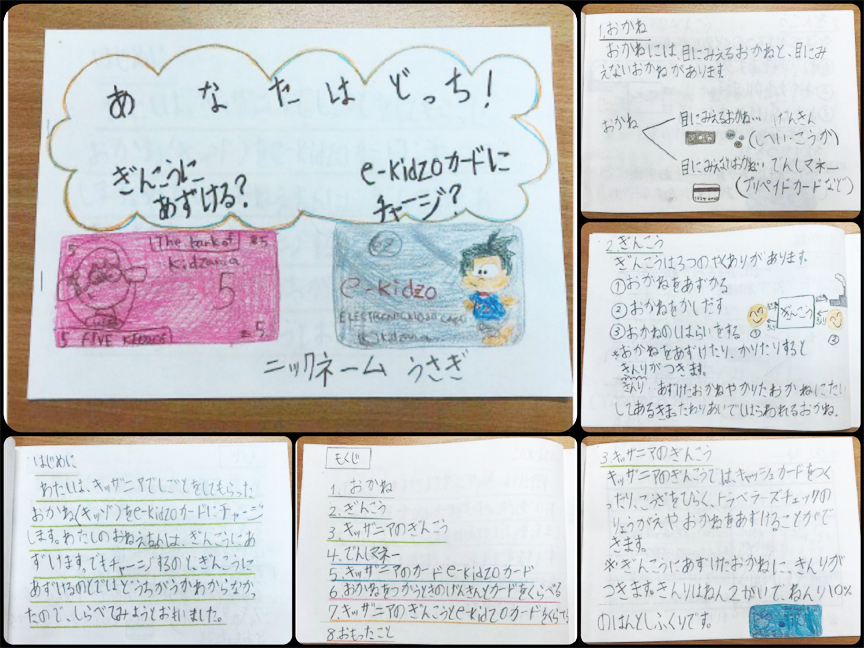 あなたはどっち！
ぎんこうに
あずける？
e-kidzoカードに
チャージ？
5
The bank of
Kidzania
5
5 FIVE
5
e-kidzo
ELECTRONIC KIDZO CARD
Kidzania
ニックネーム うさぎ
1, おかね
おかねには、目にみえるおかねと、目にみ
えないおかねがあります
おかね
目にみえるおかね… げんきん
(しへい・こうか)
目にみえないおかね… でんしマネー
(プリペイドカードなど)
2. ぎんこう
ぎんこうは3つのやくわりがあります。
①おかねをあずかる
②おかねをかしだす
③おかねのしはらいをする
ぎんこう
*おかねをあずけたり、かりたりすると
きんりがつきます。
きんり…あずけたおかねやかりたおかねにたい
してあるきまったわりあいでしはらわれるおかね。
はじめに
わたしは、キッザニアでしごとをしてもらった
おかね(キッゾ)をe-kidzoカードにチャージ
します。わたしのおねえちゃんは、ぎんこうにあ
ずけます。でもチャージするのと、ぎんこうに
あずけるのとではどうちがうかわからなかっ
たので、しらべてみようとおもいました。
もくじ
1, おかね
2. ぎんこう
3. キッザニアのぎんこう
4. でんしマネー
5. キッザニアのカードe-kidzoカード
6 おかねをつかうときのげんきんとカードをくらべる
7. キッザニアのぎんこうとe-kidzoカードをくらべる
8.おもったこと
3. キッザニアのぎんこう
キッザニアのぎんこうでは、キャッシュカードをつく
ったり、こうざをひらく、トラベラーズチェックの
りょうがえや おかねをあずけることがで
きます。
*ぎんこうにあずけたおかねに、きんりが
つきます。きんりはねん2かいで、ねんり10%
のはんとしふくりです。